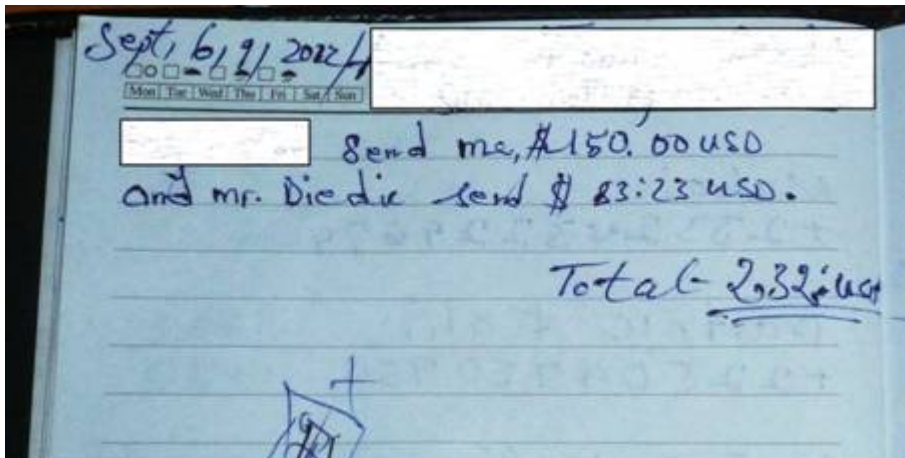 Sept, 6, 9, 2022
Mon Tue Wed Thu Fri Sat Sun
Send me, $150.00 USD
and mr. Die die send $ 83:23 USD.
Total - 2,32: